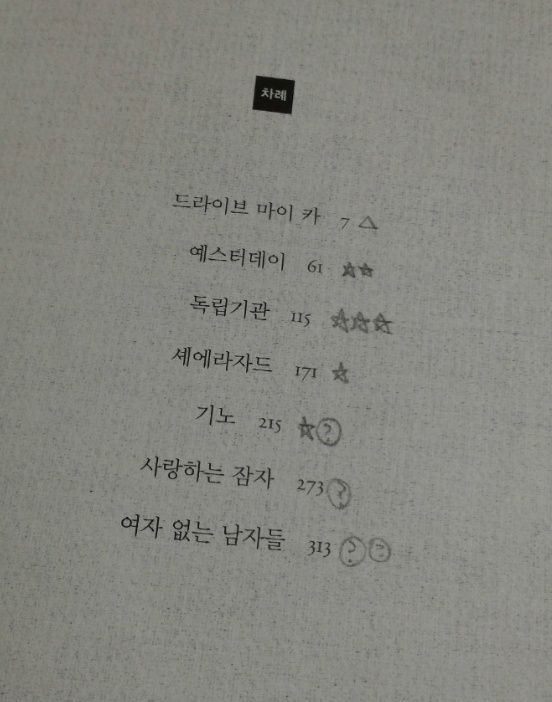 차례
드라이브 마이 카 7 △
예스터데이 61 ☆☆
독립기관 115 ☆☆☆
셰에라자드 171 ☆
기노 215 ☆?
사랑하는 잠자 273 ?
여자 없는 남자들 313 ?